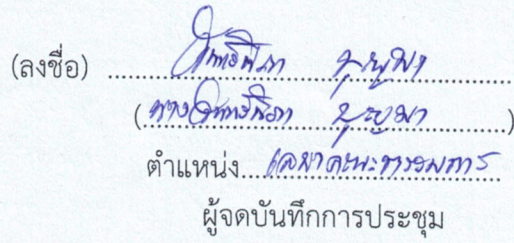 (ลงชื่อ) บุญมา
(นาง บุญมา)
ตำแหน่ง เลขาคณะกรรมการ
ผู้จดบันทึกการประชุม